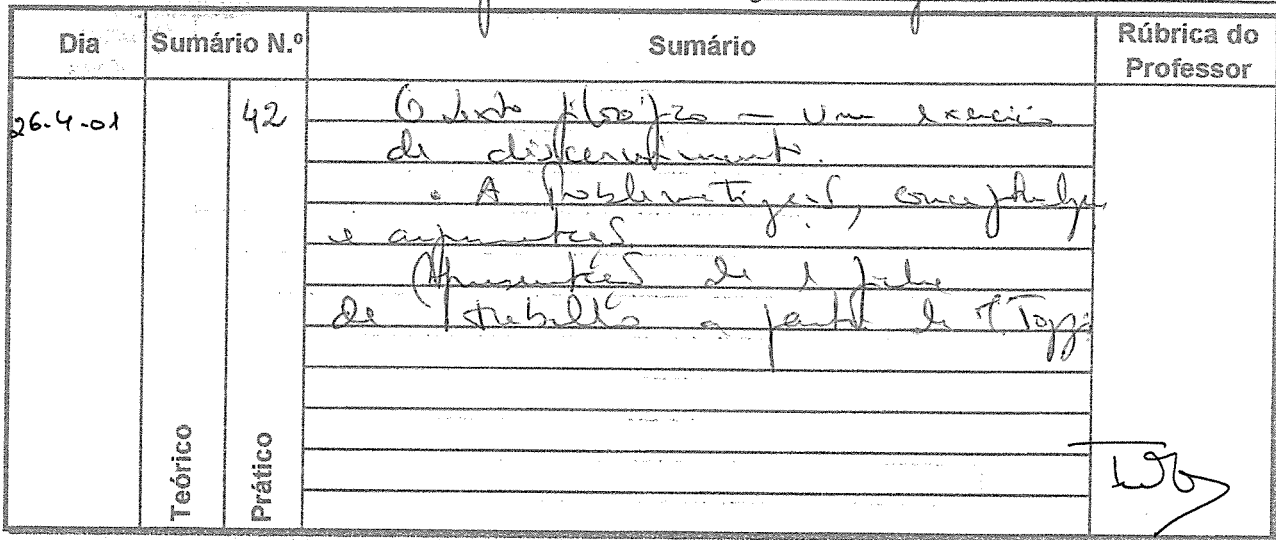 Dia Sumário N.º Sumário Rúbrica do Professor
26-4-01 42 O texto filosófico — Um exercício
de discernimento.
• A Problematização, conceptualização
e argumentação
(Apresentação de 1 ficha
de trabalho a partir de M. Tozzi
Teórico Prático